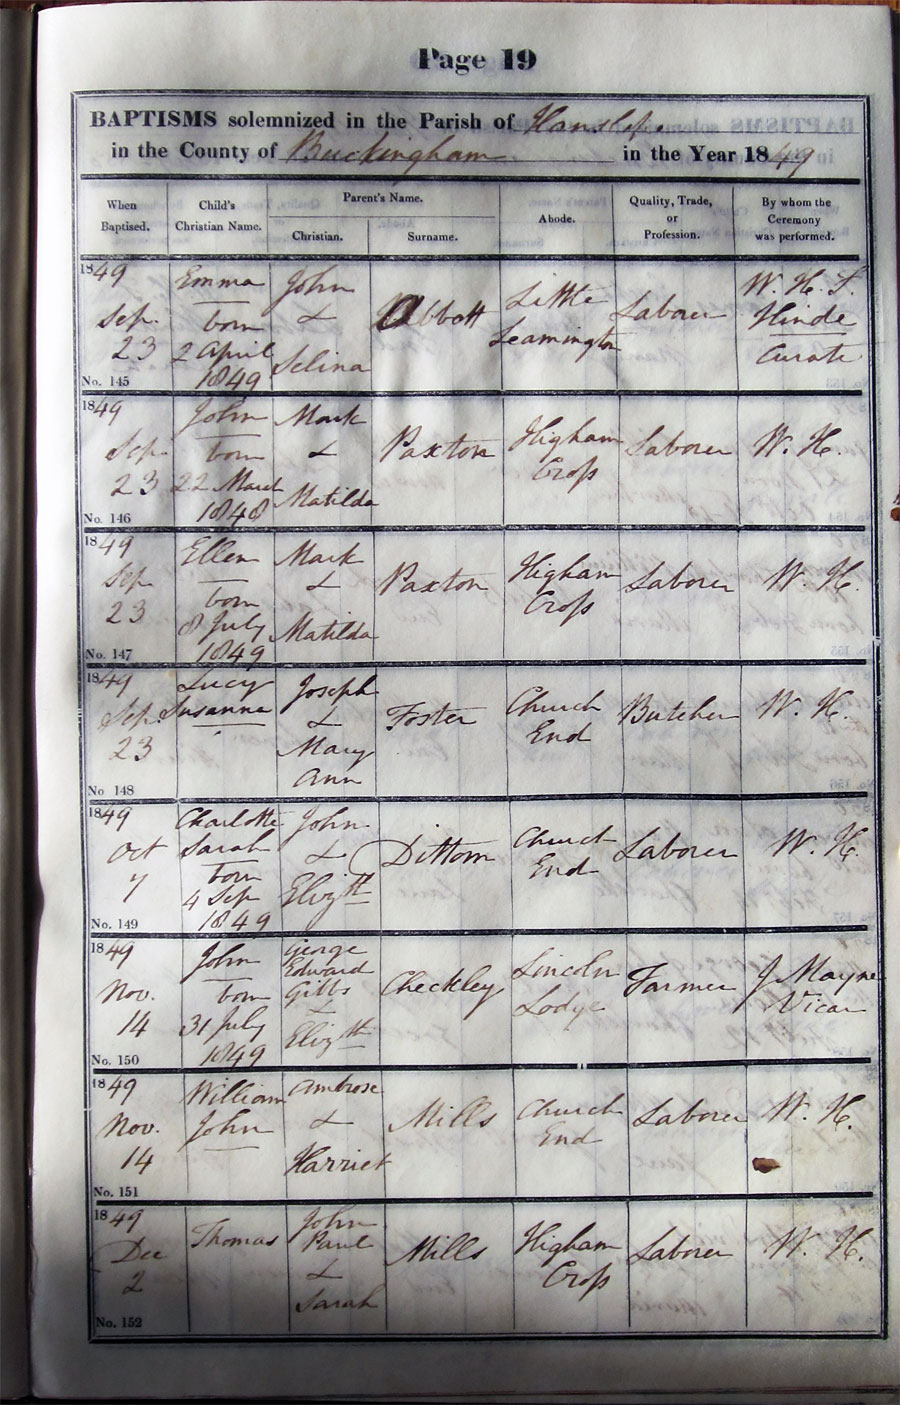 Page 19
BAPTISMS solemnized in the Parish of Hanslope
in the County of Buckingham in the Year 1849
When Baptised.
Child's Christian Name.
Parent's Name.
Christian.
Surname.
Abode.
Quality, Trade, or Profession.
By whom the Ceremony was performed.
1849
Sep.
23
No. 145
Emma
born
2 April
1849
John
&
Selina
Abbott
Little
Leamington
Laborer
W. H. S.
Hinde
Curate
1849
Sep.
23
No. 146
John
born
22 March
1848
Mark
&
Matilda
Paxton
Higham
Crofs
Laborer
W. H.
1849
Sep
23
No. 147
Ellen
born
8 July
1849
Mark
&
Matilda
Paxton
Higham
Crofs
Laborer
W. H.
1849
Sep
23
No 148
Lucy
Susanna
Joseph
&
Mary
Ann
Foster
Church
End
Butcher
W. H.
1849
Oct
7
No. 149
Charlotte
Sarah
born
4 Sep
1849
John
&
Elizth
Dittom
Church
End
Laborer
W. H.
1849
Nov.
14
No. 150
John
born
31 July
1849
George
Edward
Gibbs
&
Elizth
Checkley
Lincoln
Lodge
Farmer
J Mayne
Vicar
1849
Nov.
14
No. 151
William
John
Ambrose
&
Harriet
Mills
Church
End
Laborer
W. H.
1849
Dec
2
No. 152
Thomas
John
Paul
&
Sarah
Mills
Higham
Crofs
Laborer
W. H.